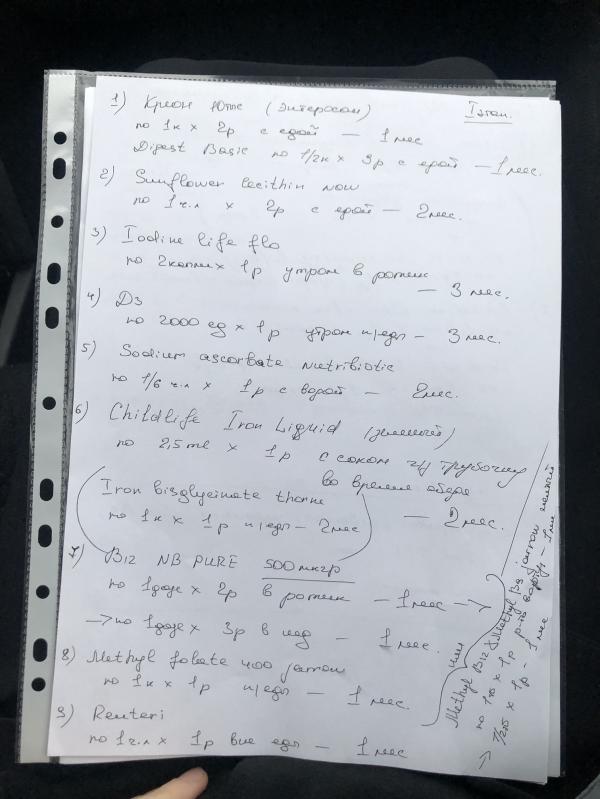 I этап.
1) Креон 10тыс (энтеросан)
по 1к х 2р с едой — 1 мес
Digest Basic по 1/2к х 3р с едой — 1 мес.
2) Sunflower lecithin now
по 1 ч.л х 2р с едой — 2 мес.
3) Iodine life flo
по 2 капли х 1р утром в ротик
— 3 мес.
4) D3
по 2000 ед х 1р утром п/еды — 3 мес.
5) Sodium ascorbate nutribiotic
по 1/6 ч.л х 1р с водой — 2 мес.
6) Childlife Iron Liquid
по 2,5 ml х 1р с соком ч/з трубочку
во время обеда
— 2 мес.
Iron bisglycinate thorne
по 1к х 1р п/еды — 2 мес
7) B12 NB PURE 500 мкгр
по 1 дозе х 2р в ротик — 1 мес →
→ по 1 дозе х 3р в нед — 1 мес.
8) Methyl folate 400 jarrow
по 1к х 1р п/еды — 1 мес.
9) Reuteri
по 1 ч.л х 1р вне еды — 1 мес
или
Methyl B12 &Methyl B9 jarrow
по 1тб х 1р — 1 мес
→ 1/2тб х 1р — 1 мес